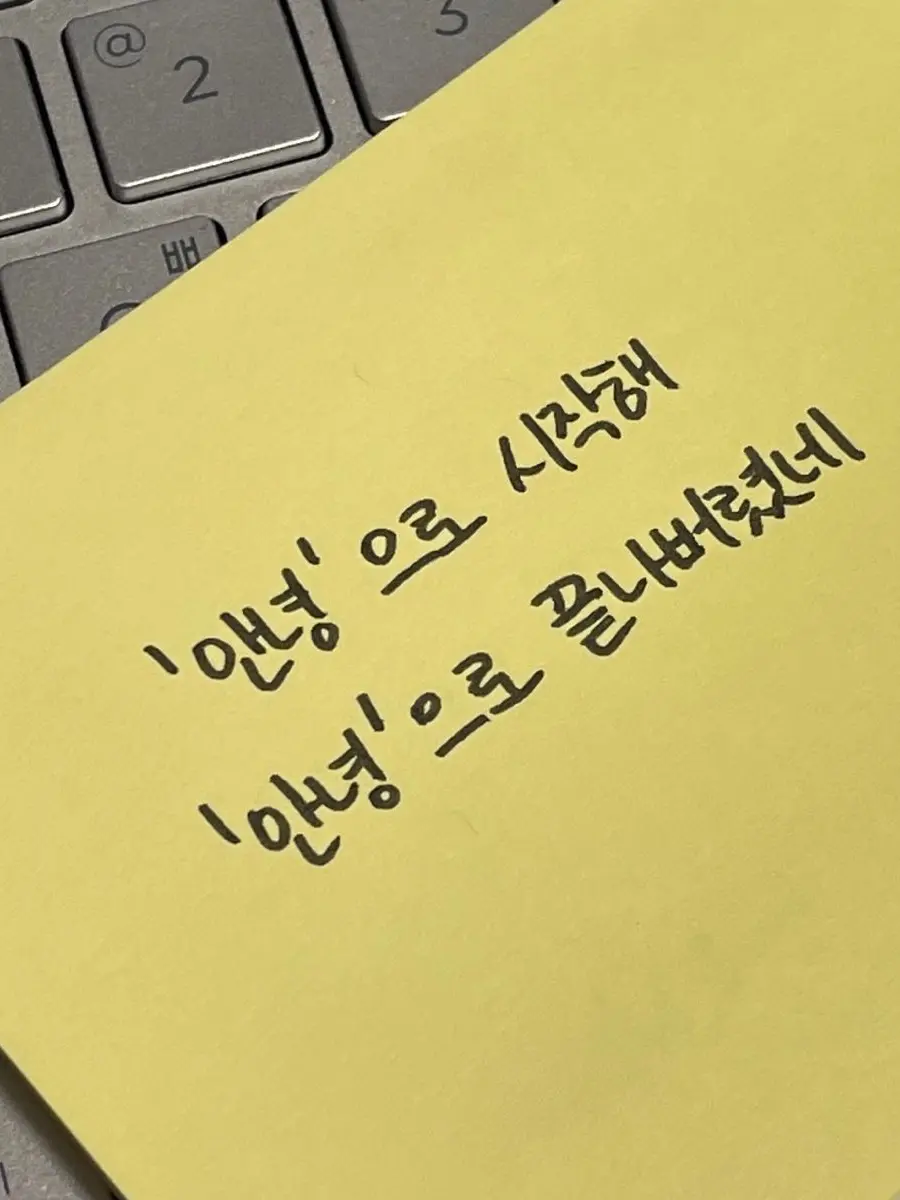 @
2
3
ㅃ
ㅂ
'안녕'으로 시작해
'안녕'으로 끝나버렸네